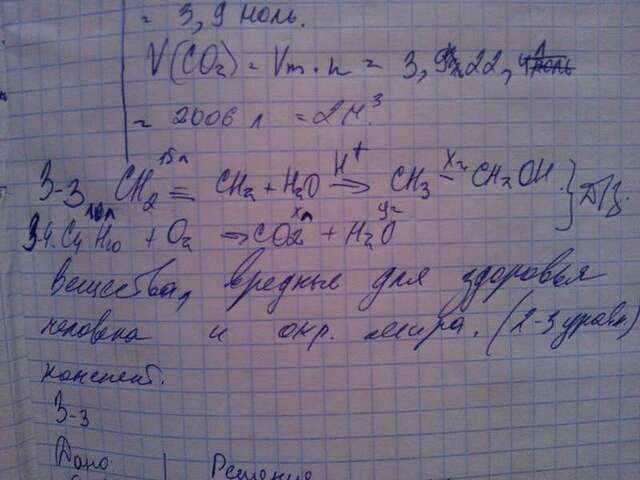 = 3,9 моль.
V(CO2) = Vm·n = 3,9·22,4
= 2006 л = 2м³
15л
З-3 CH2 = CH2 + H2O H+→ CH3 – CH2OH. } Д/З.
xг
10л xл yг
З-4. C4H10 + O2 → CO2 + H2O
вещества, вредные для здоровья
человека и окр. мира. (2-3 уравн)
конспект.
З-3
Дано | Решение